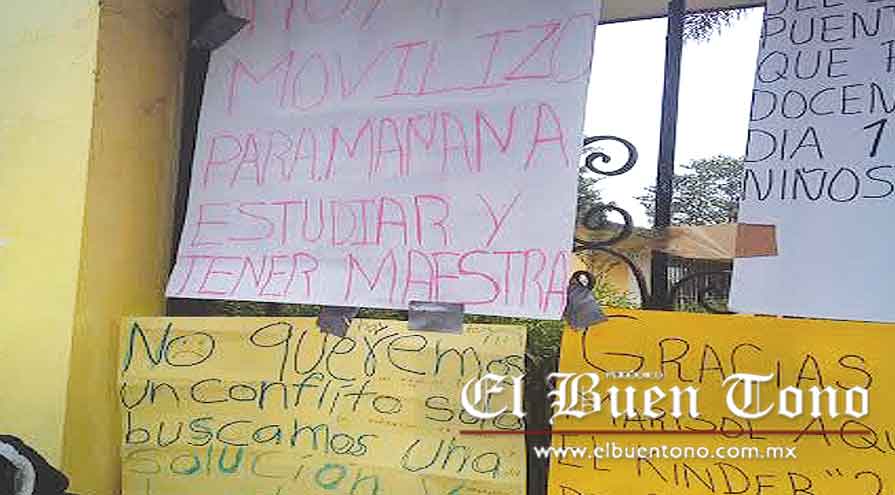 MOVILIZO
PARA MAÑANA
ESTUDIAR Y
TENER MAESTRA
PUENT
QUE
DOCEN
DIA 1
NIÑOS
No queremos
un conflito solo
buscamos una
solución
GRACIAS
MARISOL AQU
EL KINDER "2
PERIODICO
El Buen Tono
www.elbuentono.com.mx